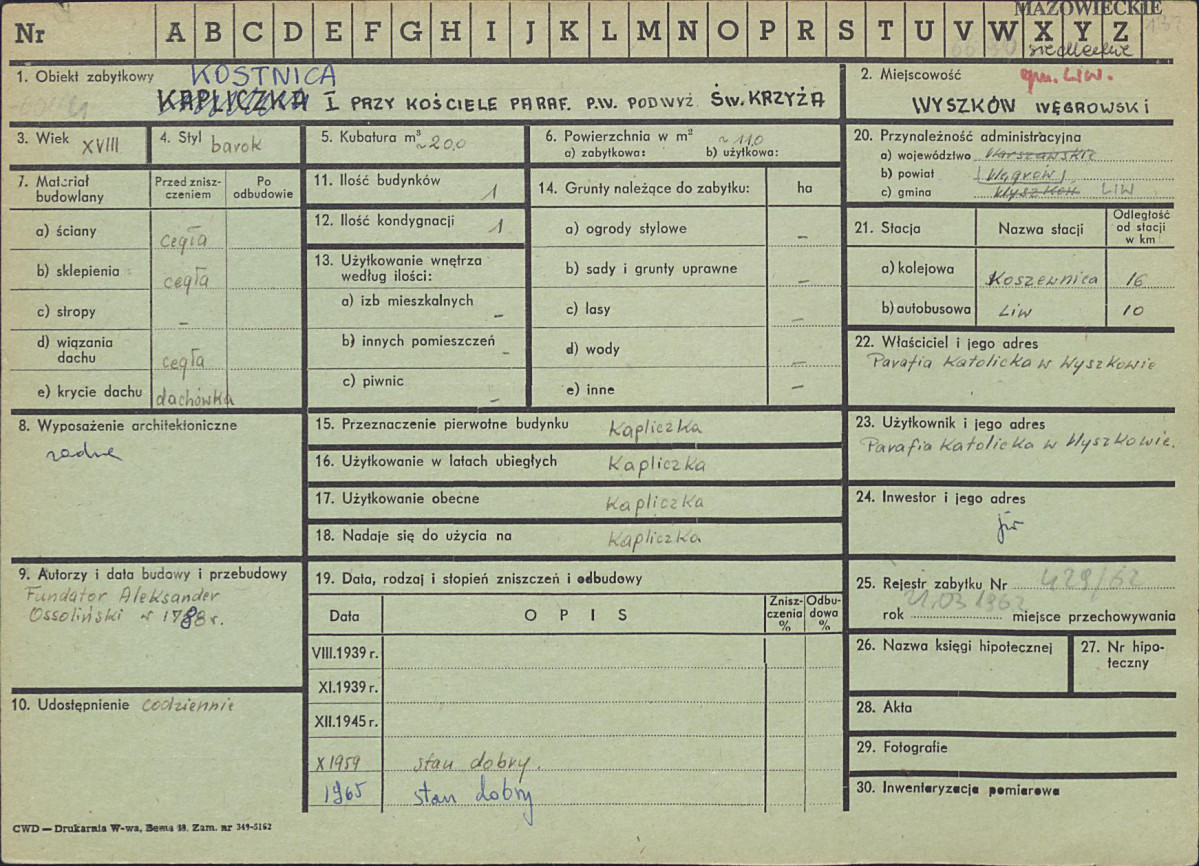 MAZOWIECKIE
Nr A B C D E F G H I J K L M N O P R S T U V W X Y Z
siedleckie
1. Obiekt zabytkowy KOSTNICA
KAPLICZKA I PRZY KOŚCIELE PARAF. P.W. PODWYŻ. ŚW. KRZYŻA
2. Miejscowość gm. Liw.
WYSZKÓW WĘGROWSKI
3. Wiek XVIII
4. Styl barok
5. Kubatura m³ ~200
6. Powierzchnia w m² ~110
a) zabytkowa: b) użytkowa:
20. Przynależność administracyjna
a) województwo Warszawskie
b) powiat Węgrów
c) gmina Wyszków LIW
7. Materiał budowlany
Przed zniszczeniem
Po odbudowie
a) ściany cegła
b) sklepienia cegła
c) stropy –
d) wiązania dachu cegła
e) krycie dachu dachówka
11. Ilość budynków 1
12. Ilość kondygnacji 1
13. Użytkowanie wnętrza
według ilości:
a) izb mieszkalnych –
b) innych pomieszczeń –
c) piwnic –
14. Grunty należące do zabytku: ha
a) ogrody stylowe –
b) sady i grunty uprawne –
c) lasy –
d) wody –
e) inne –
21. Stacja Nazwa stacji Odległość od stacji w km
a) kolejowa Koszewnica 16
b) autobusowa Liw 10
22. Właściciel i jego adres
Parafia Katolicka w Wyszkowie
8. Wyposażenie architektoniczne
żadne
15. Przeznaczenie pierwotne budynku Kapliczka
16. Użytkowanie w latach ubiegłych Kapliczka
17. Użytkowanie obecne Kapliczka
18. Nadaje się do użycia na Kapliczka
23. Użytkownik i jego adres
Parafia Katolicka w Wyszkowie.
24. Inwestor i jego adres
9. Autorzy i data budowy i przebudowy
Fundator Aleksander
Ossoliński w 1788 r.
10. Udostępnienie codziennie
19. Data, rodzaj i stopień zniszczeń i odbudowy
Data OPIS Zniszczenia % Odbudowa %
VIII.1939 r.
XI.1939 r.
XII.1945 r.
X 1959 stan dobry.
1965 stan dobry
25. Rejestr zabytku Nr 429/62
21.03 1962
rok miejsce przechowywania
26. Nazwa księgi hipotecznej
27. Nr hipoteczny
28. Akta
29. Fotografie
30. Inwentaryzacja pomiarowa
CWD — Drukarnia W-wa, Bema 48. Zam. nr 349-5162